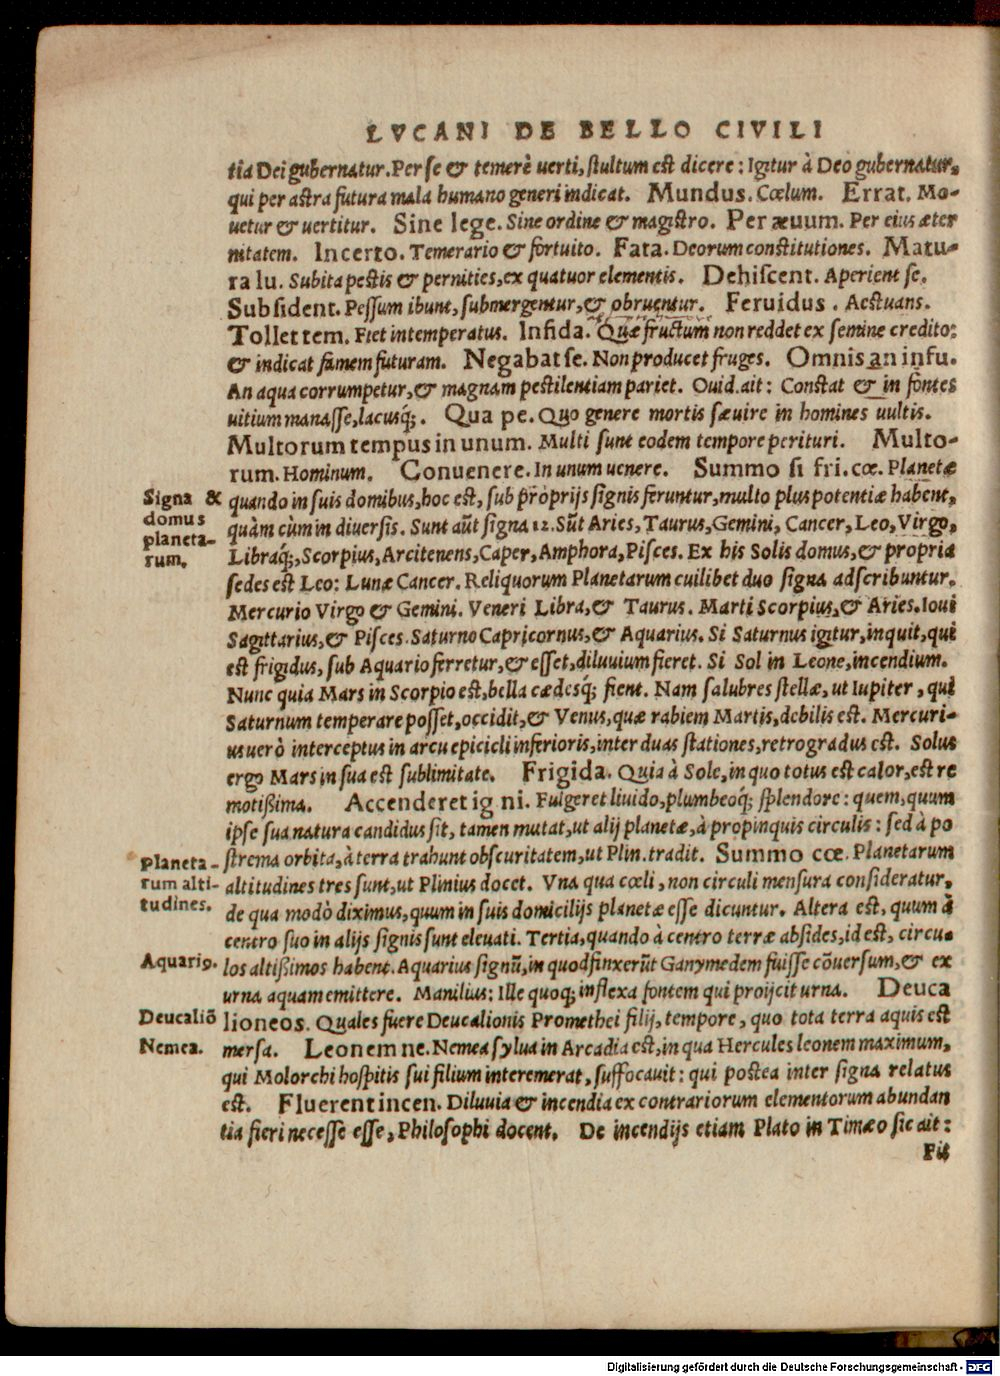 LVCANI DE BELLO CIVILI
tia Dei gubernatur. Per se & temerè uerti, stultum est dicere: Igitur à Deo gubernatur,
qui per astra futura mala humano generi indicat. Mundus. Cœlum. Errat. Mo-
uetur & uertitur. Sine lege. Sine ordine & magistro. Per æuum. Per eius æter
nitatem. Incerto. Temerario & fortuito. Fata. Deorum constitutiones. Matu-
ra lu. Subita pestis & pernities, ex quatuor elementis. Dehiscent. Aperient se.
Subsident. Pessum ibunt, submergentur, & obruentur. Feruidus. Aestuans.
Tollet tem. Fiet intemperatus. Infida. Quæ fructum non reddet ex semine credito:
& indicat famem futuram. Negabat se. Non producet fruges. Omnis an infu.
An aqua corrumpetur, & magnam pestilentiam pariet. Ouid. ait: Constat & in fontes
uitium manasse, lacusq;. Qua pe. Quo genere mortis sæuire in homines uultis.
Multorum tempus in unum. Multi sunt eodem tempore perituri. Multo-
rum. Hominum. Conuenere. In unum uenere. Summo si fri. cœ. Planetæ
Signa & quando in suis domibus, hoc est, sub proprijs signis feruntur, multo plus potentiæ habent,
domus quàm cùm in diuersis. Sunt aũt signa 12. Sũt Aries, Taurus, Gemini, Cancer, Leo, Virgo,
planeta- Libraq;, Scorpius, Arcitenens, Caper, Amphora, Pisces. Ex his Solis domus, & propria
rum. sedes est Leo: Lunæ Cancer. Reliquorum Planetarum cuilibet duo signa adscribuntur.
Mercurio Virgo & Gemini. Veneri Libra, & Taurus. Marti Scorpius, & Aries. Ioui
Sagittarius, & Pisces. Saturno Capricornus, & Aquarius. Si Saturnus igitur, inquit, qui
est frigidus, sub Aquario ferretur, & esset, diluuium fieret. Si Sol in Leone, incendium.
Nunc quia Mars in Scorpio est, bella cædesq́; fient. Nam salubres stellæ, ut Iupiter, qui
Saturnum temperare posset, occidit, & Venus, quæ rabiem Martis, debilis est. Mercuri-
us uerò interceptus in arcu epicicli inferioris, inter duas stationes, retrogradus est. Solus
ergo Mars in sua est sublimitate. Frigida. Quia à Sole, in quo totus est calor, est re
motißima. Accenderet ig ni. Fulgeret liuido, plumbeoq́; splendore: quem, quum
ipse sua natura candidus sit, tamen mutat, ut alij planetæ, à propinquis circulis: sed à po
Planeta- strema orbita, à terra trahunt obscuritatem, ut Plin. tradit. Summo cœ. Planetarum
rum alti- altitudines tres sunt, ut Plinius docet. Vna qua cœli, non circuli mensura consideratur,
tudines. de qua modò diximus, quum in suis domicilijs planetæ esse dicuntur. Altera est, quum à
centro suo in alijs signis sunt eleuati. Tertia, quando à centro terræ absides, id est, circu-
Aquari9. los altißimos habent. Aquarius signũ, in quod finxerũt Ganymedem fuisse cõuersum, & ex
urna aquam emittere. Manilius: Ille quoq; inflexa fontem qui proijcit urna. Deuca
Deucaliõ lioneos. Quales fuere Deucalionis Promethei filij, tempore, quo tota terra aquis est
Nemea. mersa. Leonem ne. Nemea sylua in Arcadia est, in qua Hercules leonem maximum,
qui Molorchi hospitis sui filium interemerat, suffocauit: qui postea inter signa relatus
est. Fluerent incen. Diluuia & incendia ex contrariorum elementorum abundan
tia fieri necesse esse, Philosophi docent. De incendijs etiam Plato in Timæo sic ait:
Fit
Digitalisierung gefördert durch die Deutsche Forschungsgemeinschaft - DFG